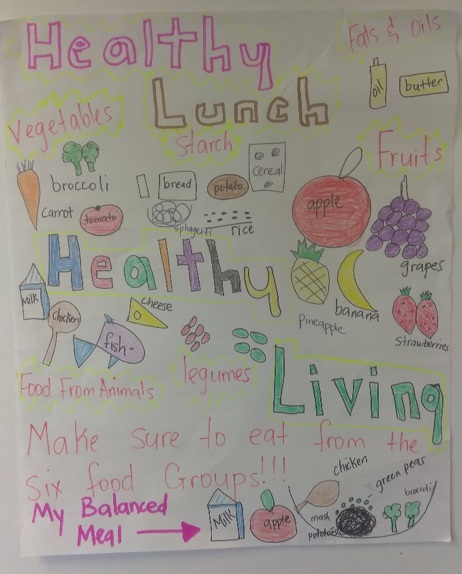 Healthy
Lunch
Fats & Oils
oil
butter
Vegetables
Starch
Fruits
broccoli
carrot
tomato
bread
potato
cereal
sphagetti
rice
apple
grapes
Healthy
Milk
chicken
cheese
fish
Pineapple
banana
Strawberries
Food From Animals
legumes
Living
Make sure to eat from the
six food Groups!!!
My Balanced
Meal
Milk
apple
chicken
mash
potatoes
green peas
broccoli